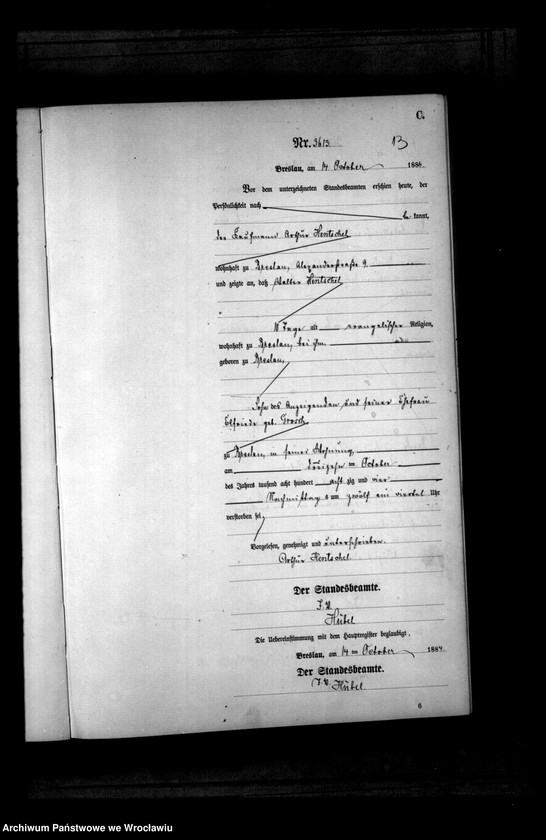 C.
Nr. 3613
B
Breslau, am 14 October 1884.
Vor dem unterzeichneten Standesbeamten erschien heute, der
Persönlichkeit nach
be kannt,
der Kaufmann Arthur Hentschel
wohnhaft zu Breslau, Alexanderstraße 9
und zeigte an, daß Walter Hentschel
10 Tage alt evangelischer Religion,
wohnhaft zu Breslau, bei ihm
geboren zu Breslau,
Sohn des Anzeigenden und seiner Ehefrau
Elfriede geb.
zu Breslau, in seiner Wohnung,
am dreizehn ten October
des Jahres tausend acht hundert acht zig und vier
Nachmittag s um zwölf ein viertel Uhr
verstorben sei.
Vorgelesen, genehmigt und unterschrieben.
Arthur Hentschel.
Der Standesbeamte.
I. V.
Hübel
Die Uebereinstimmung mit dem Hauptregister beglaubigt.
Breslau, am 14 ten October 1884.
Der Standesbeamte.
I. V. Hübel.
6
Archiwum Państwowe we Wrocławiu